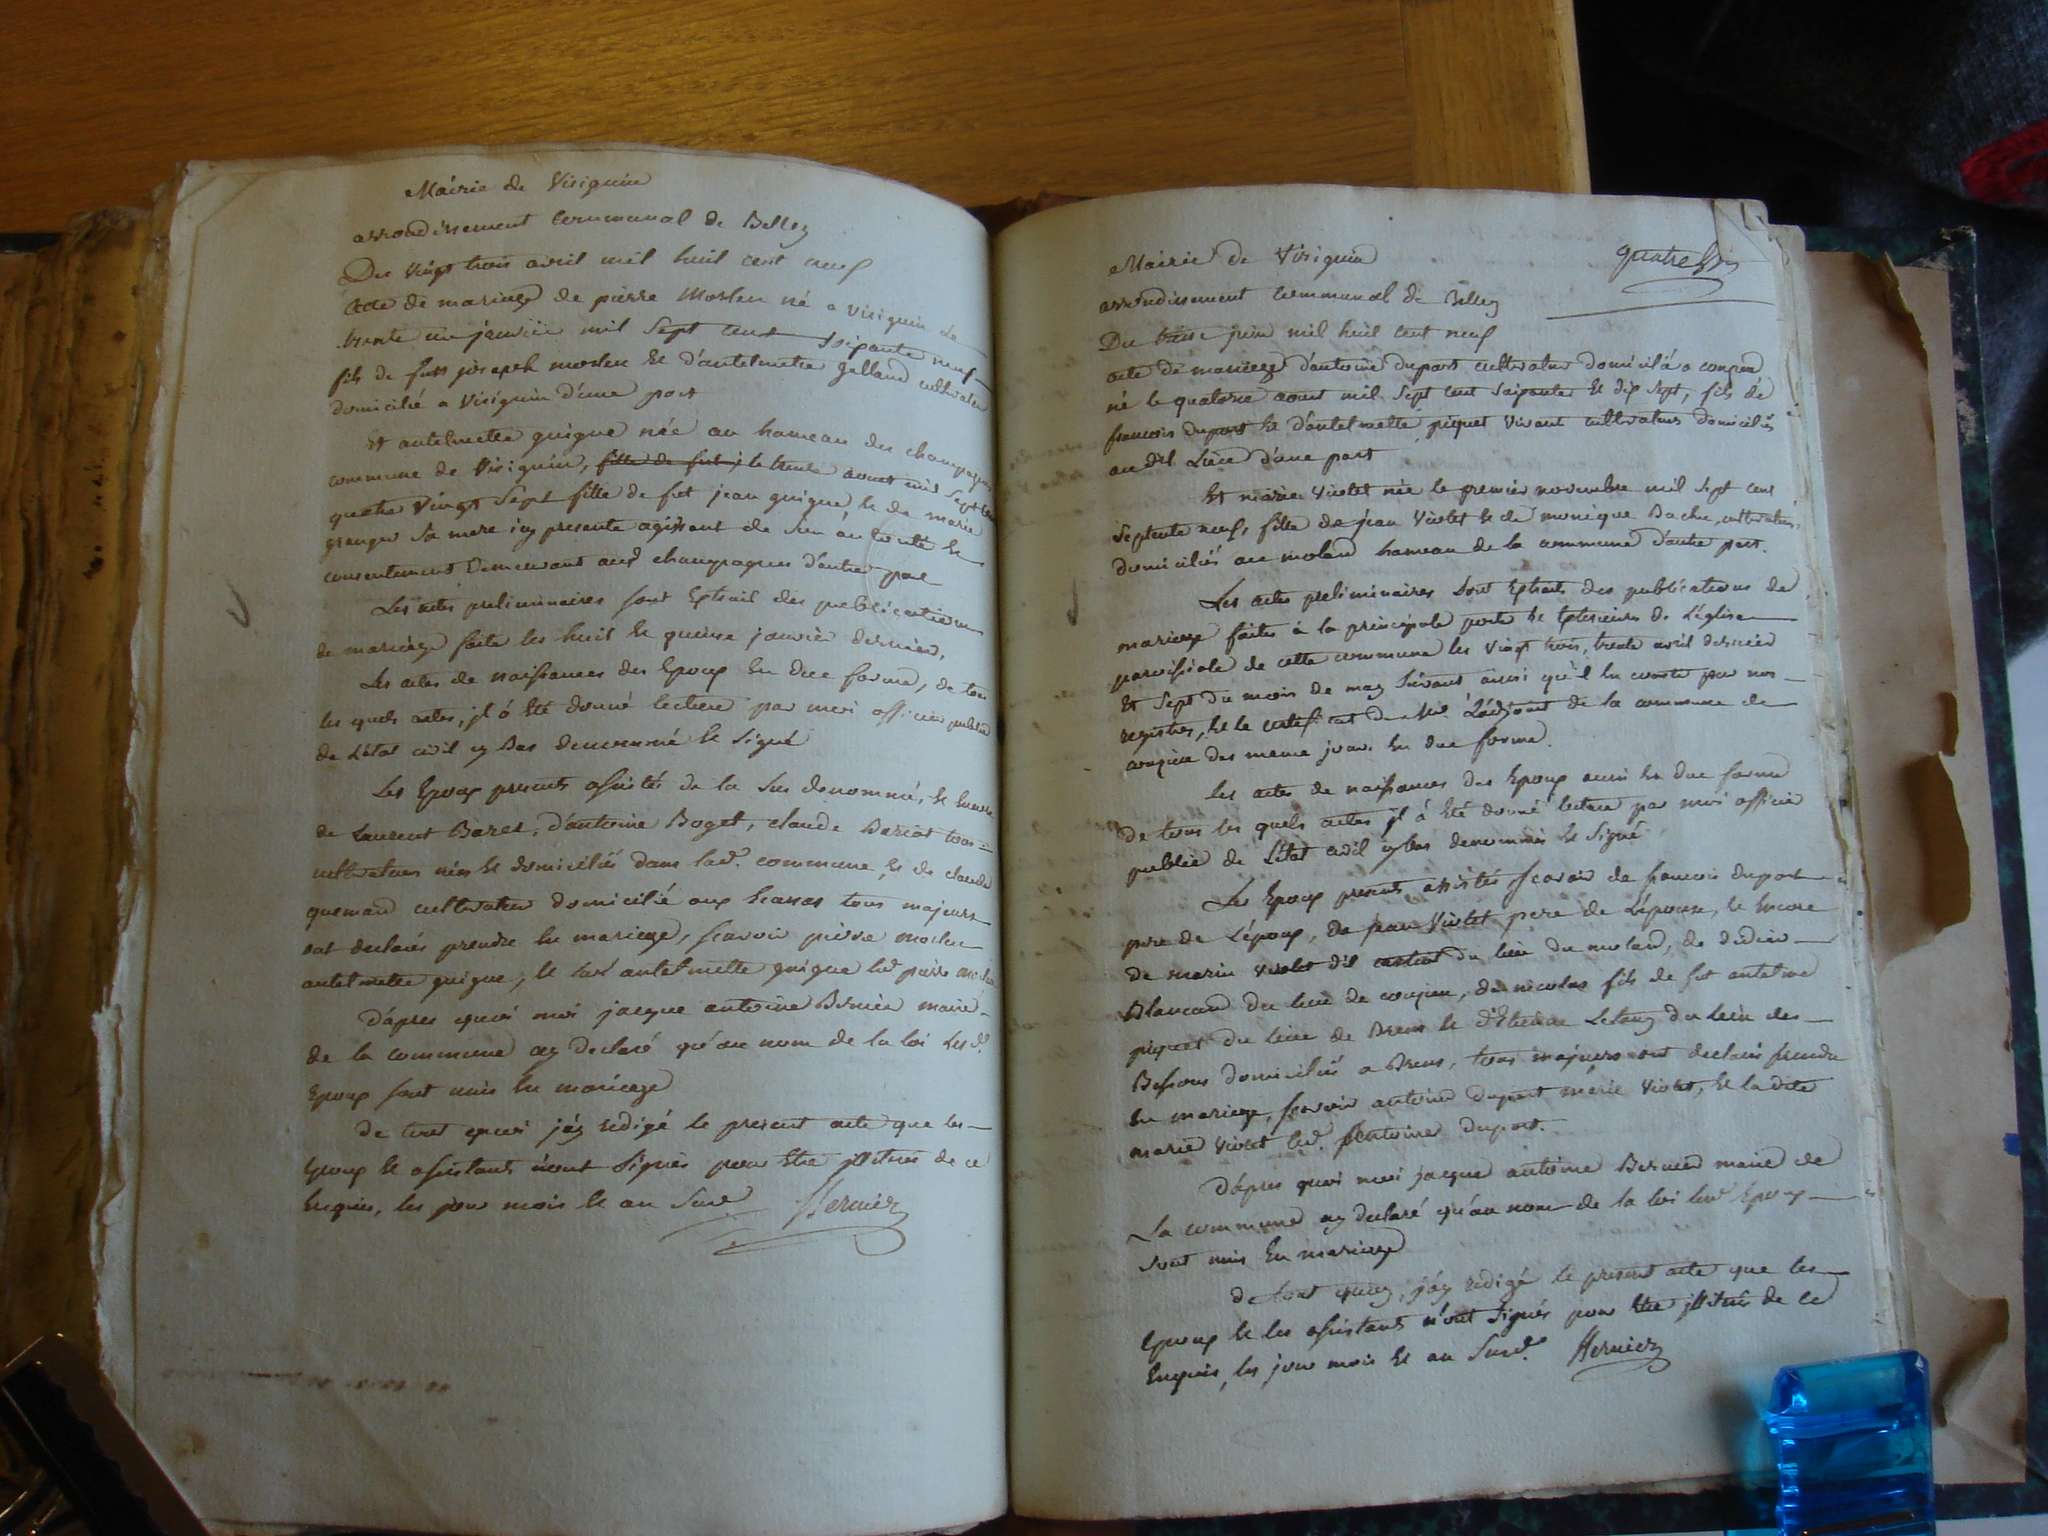 Mairie de Virignin
arrondissement Communal de Belley
Du vingt trois avril mil huit cent neuf
Acte de mariage de pierre Morlen né a Virignin le
trente un janvier mil sept cent soixante neuf
fils de feu joseph morlen et d'antelmette Galland cultivateur
domicilié a Virignin d'une part
Et antelmette guigue née au hameau des champagnes
commune de Virignin, fille de fut j le trente aout mil sept cent
quatre vingt sept fille de fut jean guigue, et de marie
granger sa mere icy presente agissant de son autorité et
consentement demeurant aux champagnes d'autre part
Les actes preliminaires sont Extrait des publications
de mariage faite les huit et quinze janvier dernier,
Les actes de naissances des Epoux En due forme, de tous
les quels actes, jl á été donné lecture par moi officier public
de L'état civil cy Bas denommé et signé
Les Epoux presents assistés de la sus denommé, et encore
de Laurent Baret, d'antoine Boget, claude Bariot tous
cultivateurs nés et domiciliés dans lad. commune, et de claude
quemand cultivateur domicilié aux tous majeurs
ont declarés prendre En mariage, scavoir pierre morlen
antelmette guigue, et lad antelmette guigue led pierre morlen
D'apres quoi moi jacque antoine Bernier maire
de la commune ay declaré qu'au nom de la loi Lesd.
Epoux sont unis En mariage
de tout quoi j'ay redigé le present acte que les
Epoux et assistants n'ont signés pour etre jllitérés de ce
Enquis, les jour mois et an Susd Bernier
quatre
Mairie de Virignin
arrondissement Communal de Belley
Du treize juin mil huit cent neuf
acte de mariage d'antoine dupont cultivateur domicilié a conzieu
né le quatorze aout mil sept cent soixante et dix sept, fils de
francois dupont et d'antelmette piquet vivant cultivateurs domiciliés
au dit Lieu d'une part
Et marie Violet née le premier novembre mil sept cent
septente neuf, fille de jean Violet et de monique Bache, cultivateurs
domiciliés au molard hameau de la commune d'autre part.
Les actes preliminaires sont Extraits des publications de
mariage faites à la principale porte et Exterieure de L'église
paroissiale de cette commune les vingt trois, trente avril dernier
Et sept du mois de may suivant ainsi qu'il En conste par nos
registres, Et le certificat de Mr. L'adjoint de la commune de
conzieu des meme jours En due forme.
Les actes de naissances des Epoux aussi En due forme
de tous les quels actes jl á été donné lecture par moi officier
public de L'état civil cy bas denommé et Signé
Les Epoux presents assistés scavoir de francois dupont
pere de L'époux, de jean Violet pere de L'épouse, et Encore
de marin Violet dit du lieu du molard, de didier
Blancand du lieu de conzieu, de nicolas fils de fut antelme
piquet du lieu de Brens et d'Etienne Letang du lieu des
Bessons domiciliés a Brens, tous majeurs ont declarés prendre
En mariage, scavoir antoine dupont marie Violet, Et la dite
marie Violet led. antoine dupont.
D'apres quoi moi jacque antoine Bernier maire de
La commune ay declaré qu'au nom de la loi lesd Epoux
sont unis En mariage
de tout quoi, j'ay redigé le present acte que les
Epoux et les assistants n'ont signés pour être jllitérés de ce
Enquis, les jour mois et an Susd. Bernier